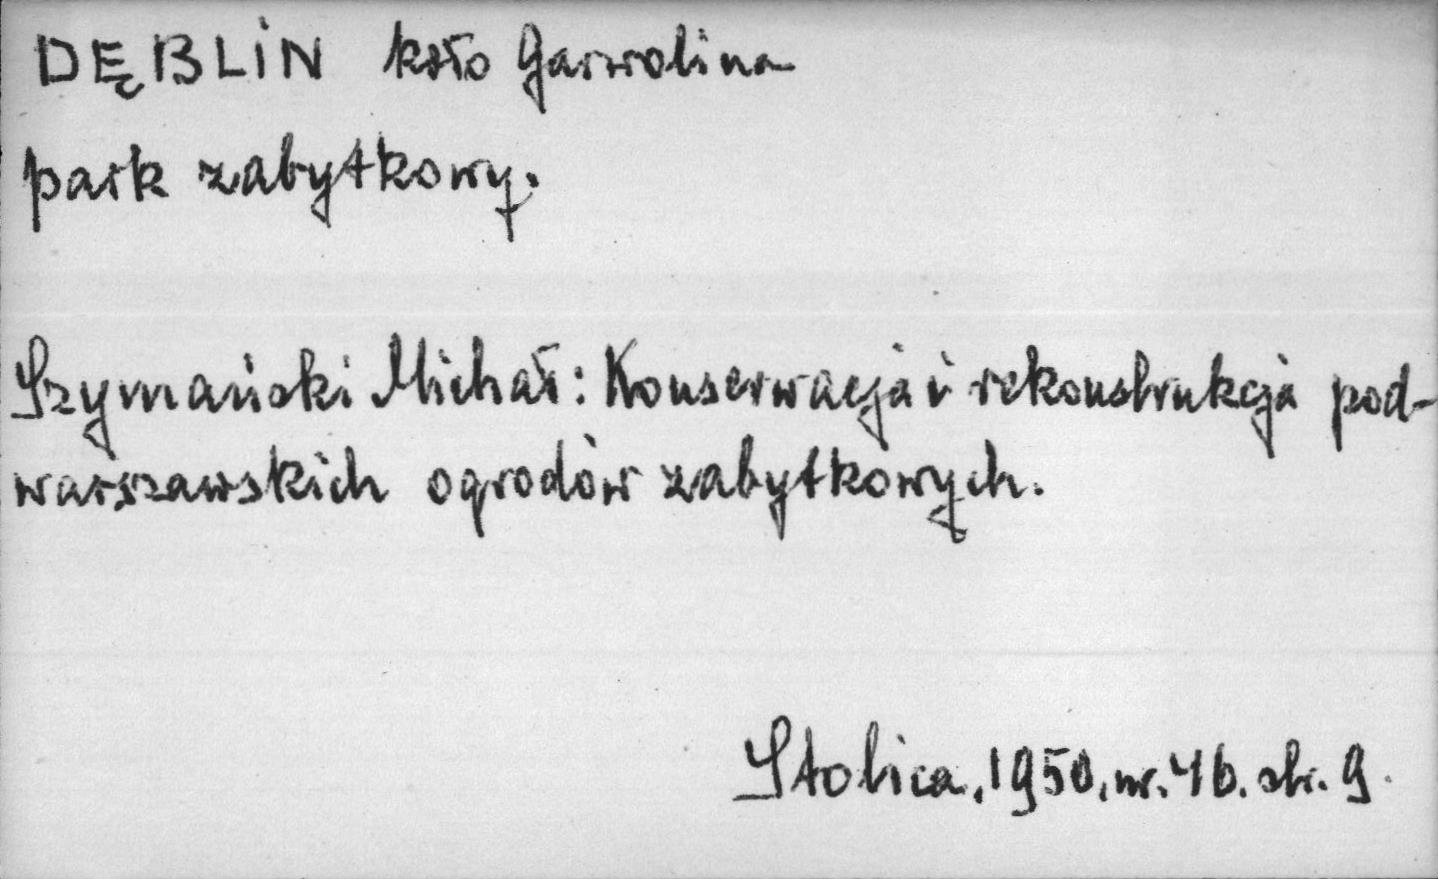 DĘBLIN koło Garwolina
park zabytkowy.
Szymański Michał: Konserwacja i rekonstrukcja pod-
warszawskich ogrodów zabytkowych.
Stolica, 1950, nr. 46. str. 9.